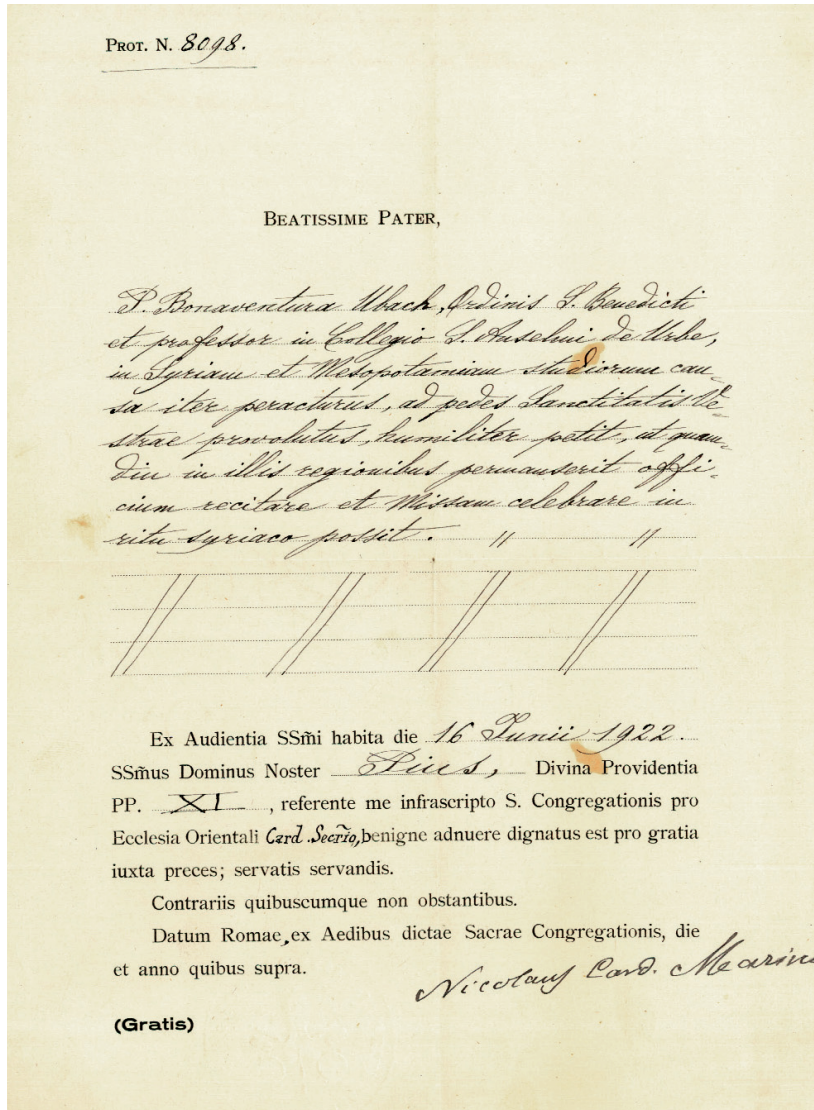 PROT. N. 8098.
BEATISSIME PATER,
P. Bonaventura Ubach, Ordinis S. Benedicti
et professor in Collegio S. Anselmi de Urbe,
in Syriam et Mesopotamiam studiorum cau-
sa iter peracturus, ad pedes Sanctitatis Ve-
strae provolutus, humiliter petit, ut quam-
diu in illis regionibus permanserit offi-
cium recitare et Missam celebrare in
ritu syriaco possit. " "
Ex Audientia SSm̃i habita die 16 Junii 1922.
SSm̃us Dominus Noster Pius, Divina Providentia
PP. XI, referente me infrascripto S. Congregationis pro
Ecclesia Orientali Card. Secrĩo, benigne adnuere dignatus est pro gratia
iuxta preces; servatis servandis.
Contrariis quibuscumque non obstantibus.
Datum Romae, ex Aedibus dictae Sacrae Congregationis, die
et anno quibus supra.
Nicolaus Card. Marini
(Gratis)